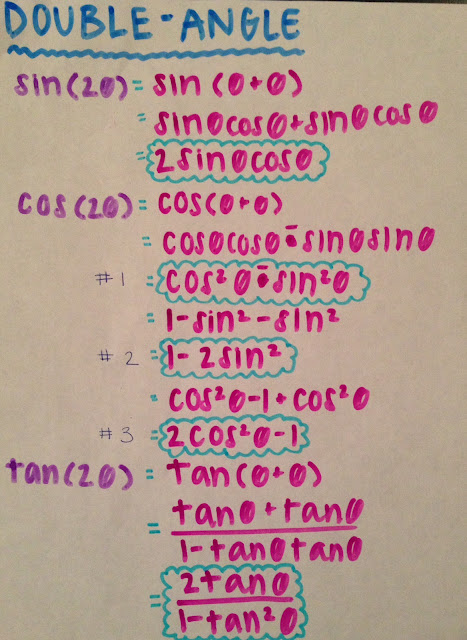 DOUBLE-ANGLE
sin(2θ) = sin (θ+θ)
= sinθcosθ+sinθcosθ
= 2sinθcosθ
cos(2θ) = cos(θ+θ)
= cosθcosθ - sinθsinθ
#1 = cos²θ - sin²θ
= 1-sin²-sin²
#2 = 1-2sin²
= cos²θ-1+cos²θ
#3 = 2cos²θ-1
tan(2θ) = tan(θ+θ)
= tanθ+tanθ
1-tanθtanθ
= 2tanθ
1-tan²θ